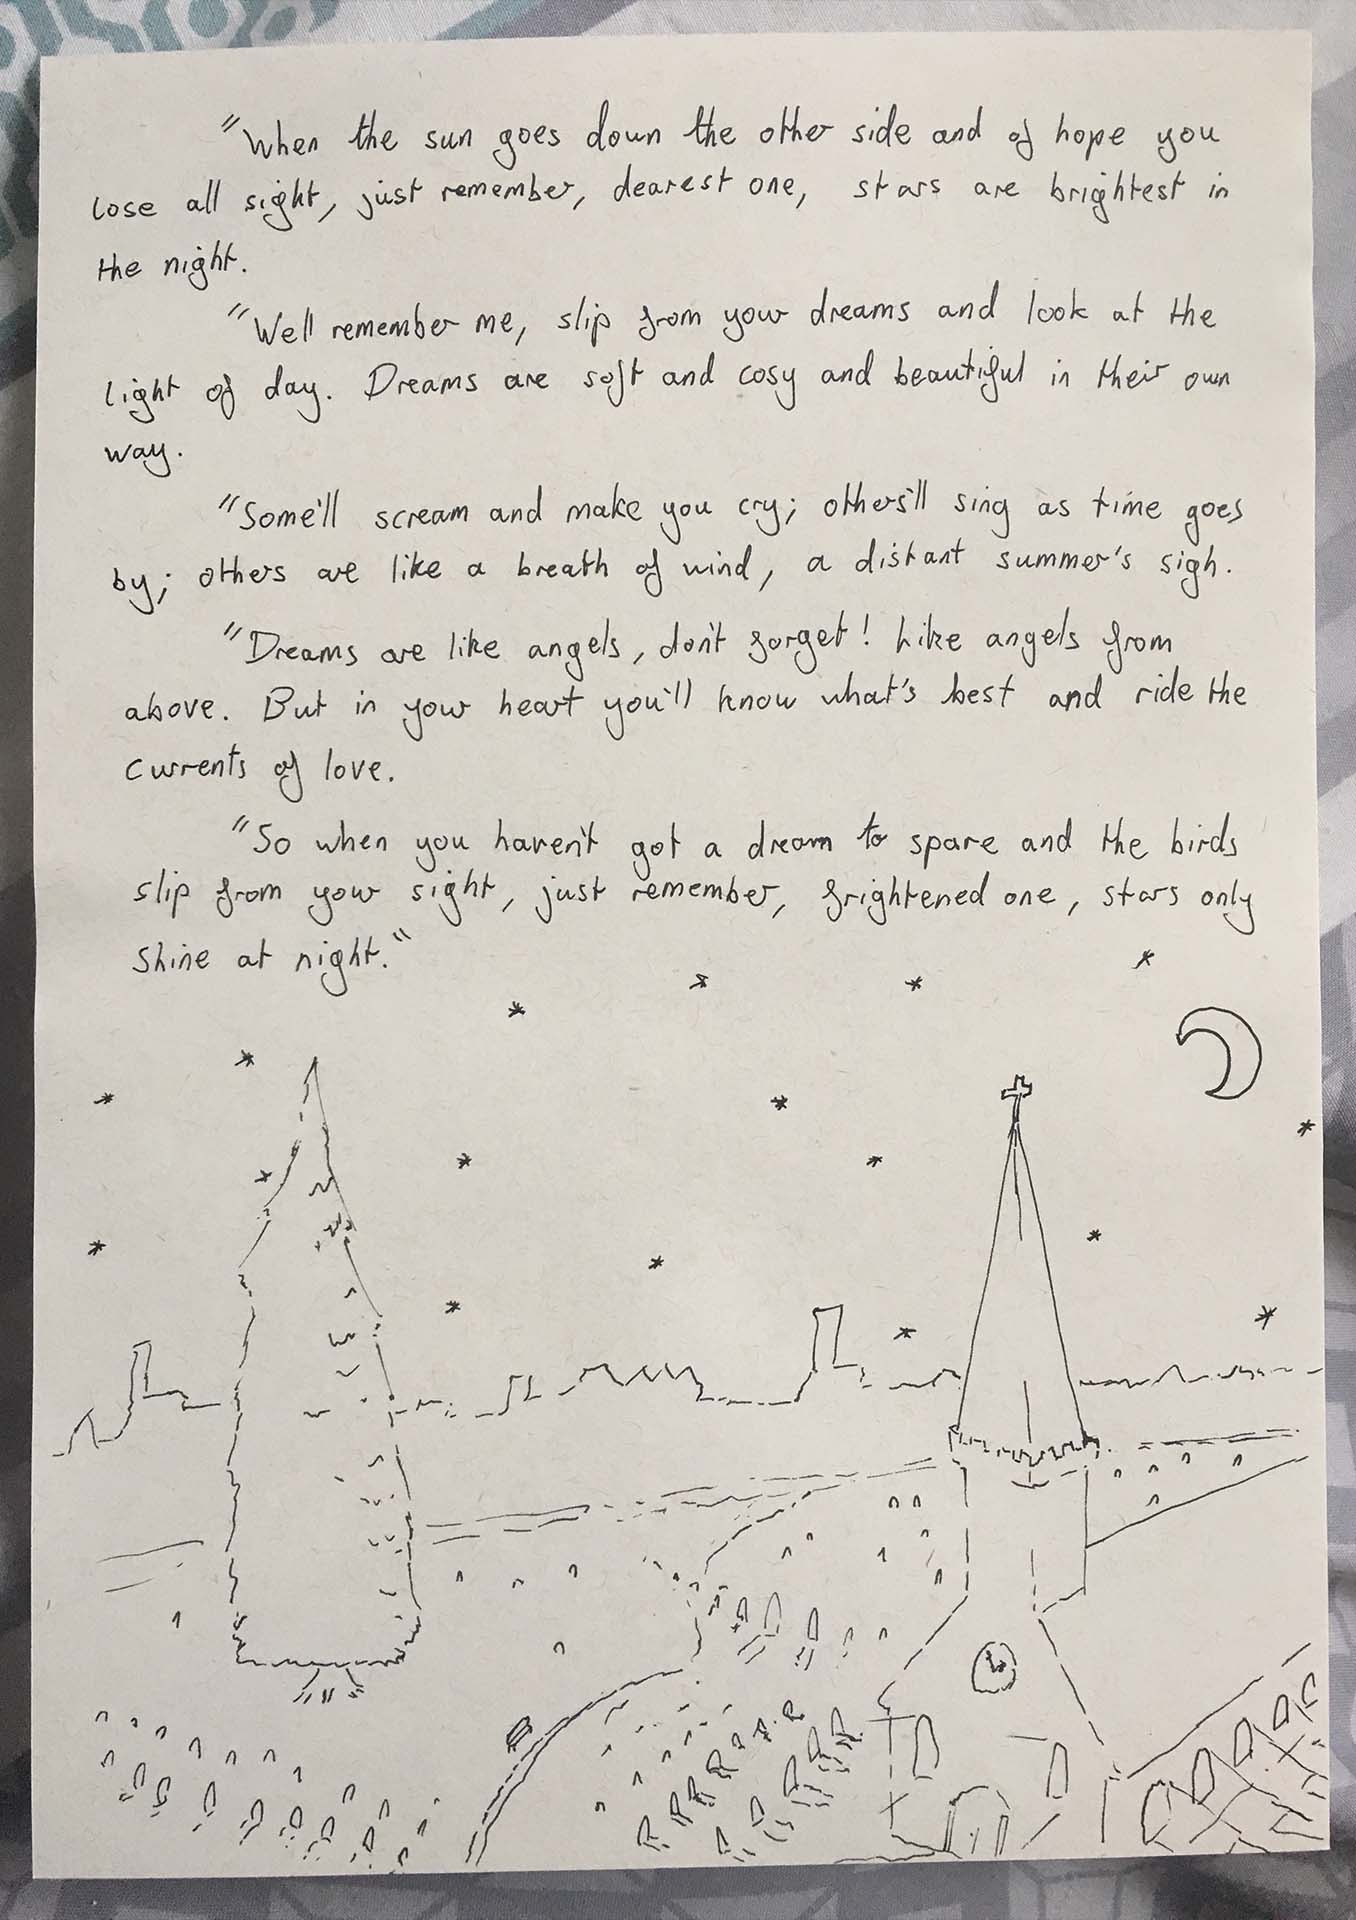 "When the sun goes down the other side and of hope you
lose all sight, just remember, dearest one, stars are brightest in
the night.
"Well remember me, slip from your dreams and look at the
light of day. Dreams are soft and cosy and beautiful in their own
way.
"Some'll scream and make you cry; others'll sing as time goes
by; others are like a breath of wind, a distant summer's sigh.
"Dreams are like angels, don't forget! Like angels from
above. But in your heart you'll know what's best and ride the
currents of love.
"So when you haven't got a dream to spare and the birds
slip from your sight, just remember, frightened one, stars only
shine at night."